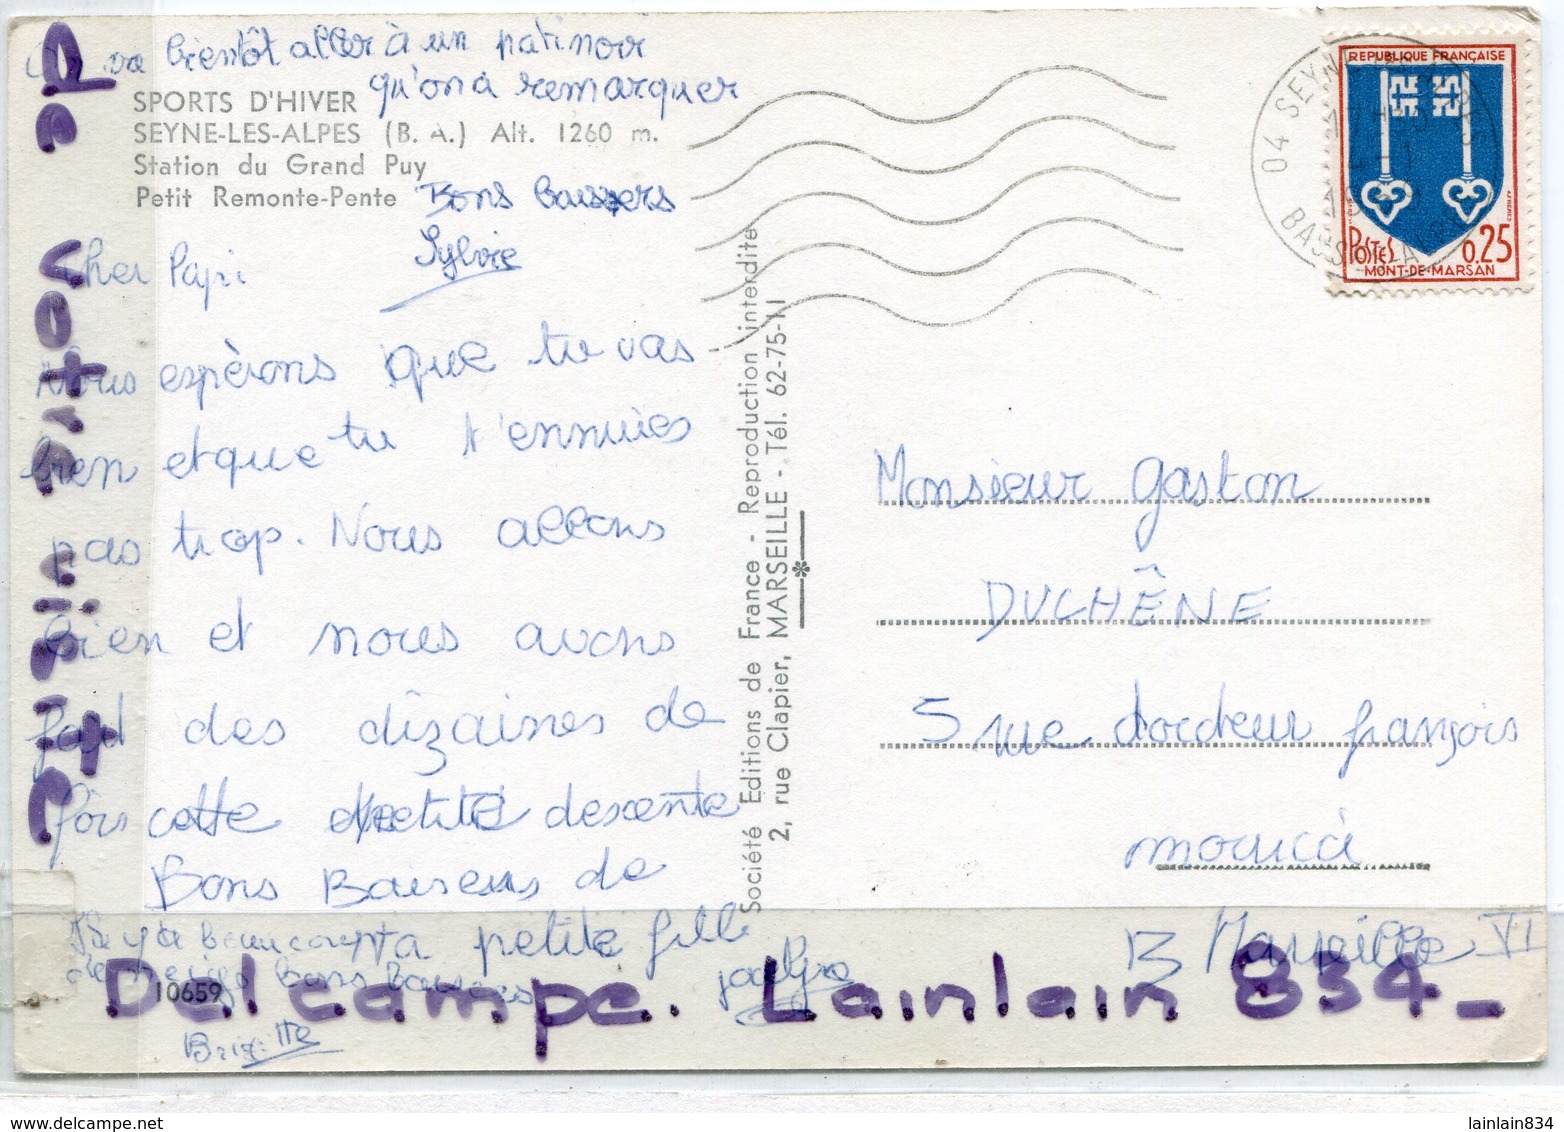 va bientôt aller à un patinoir
qu'on a remarquer
SPORTS D'HIVER
SEYNE-LES-ALPES (B. A.) Alt. 1260 m.
Station du Grand Puy
Petit Remonte-Pente
Bons baisers
Sylvie
Cher Papi
Nous espèrons que tu vas
bien et que tu t'ennuies
pas trop. Nous allons
bien et nous avons
fait des dizaines de
fois cette petite descente
Bons Baisers de
ta petite fille
Il y a beaucoup
de neige bons baisers
Brigitte
10659
Société Editions de France - Reproduction interdite
2, rue Clapier, MARSEILLE - Tél. 62-75-11
REPUBLIQUE FRANÇAISE
POSTES 0,25
MONT-DE-MARSAN
04 SEYNE
Monsieur Gaston
DUCHÊNE
5 rue françois
Marseille VI
de votre visite.
Delcampe. Lainlain 834_
lainlain834